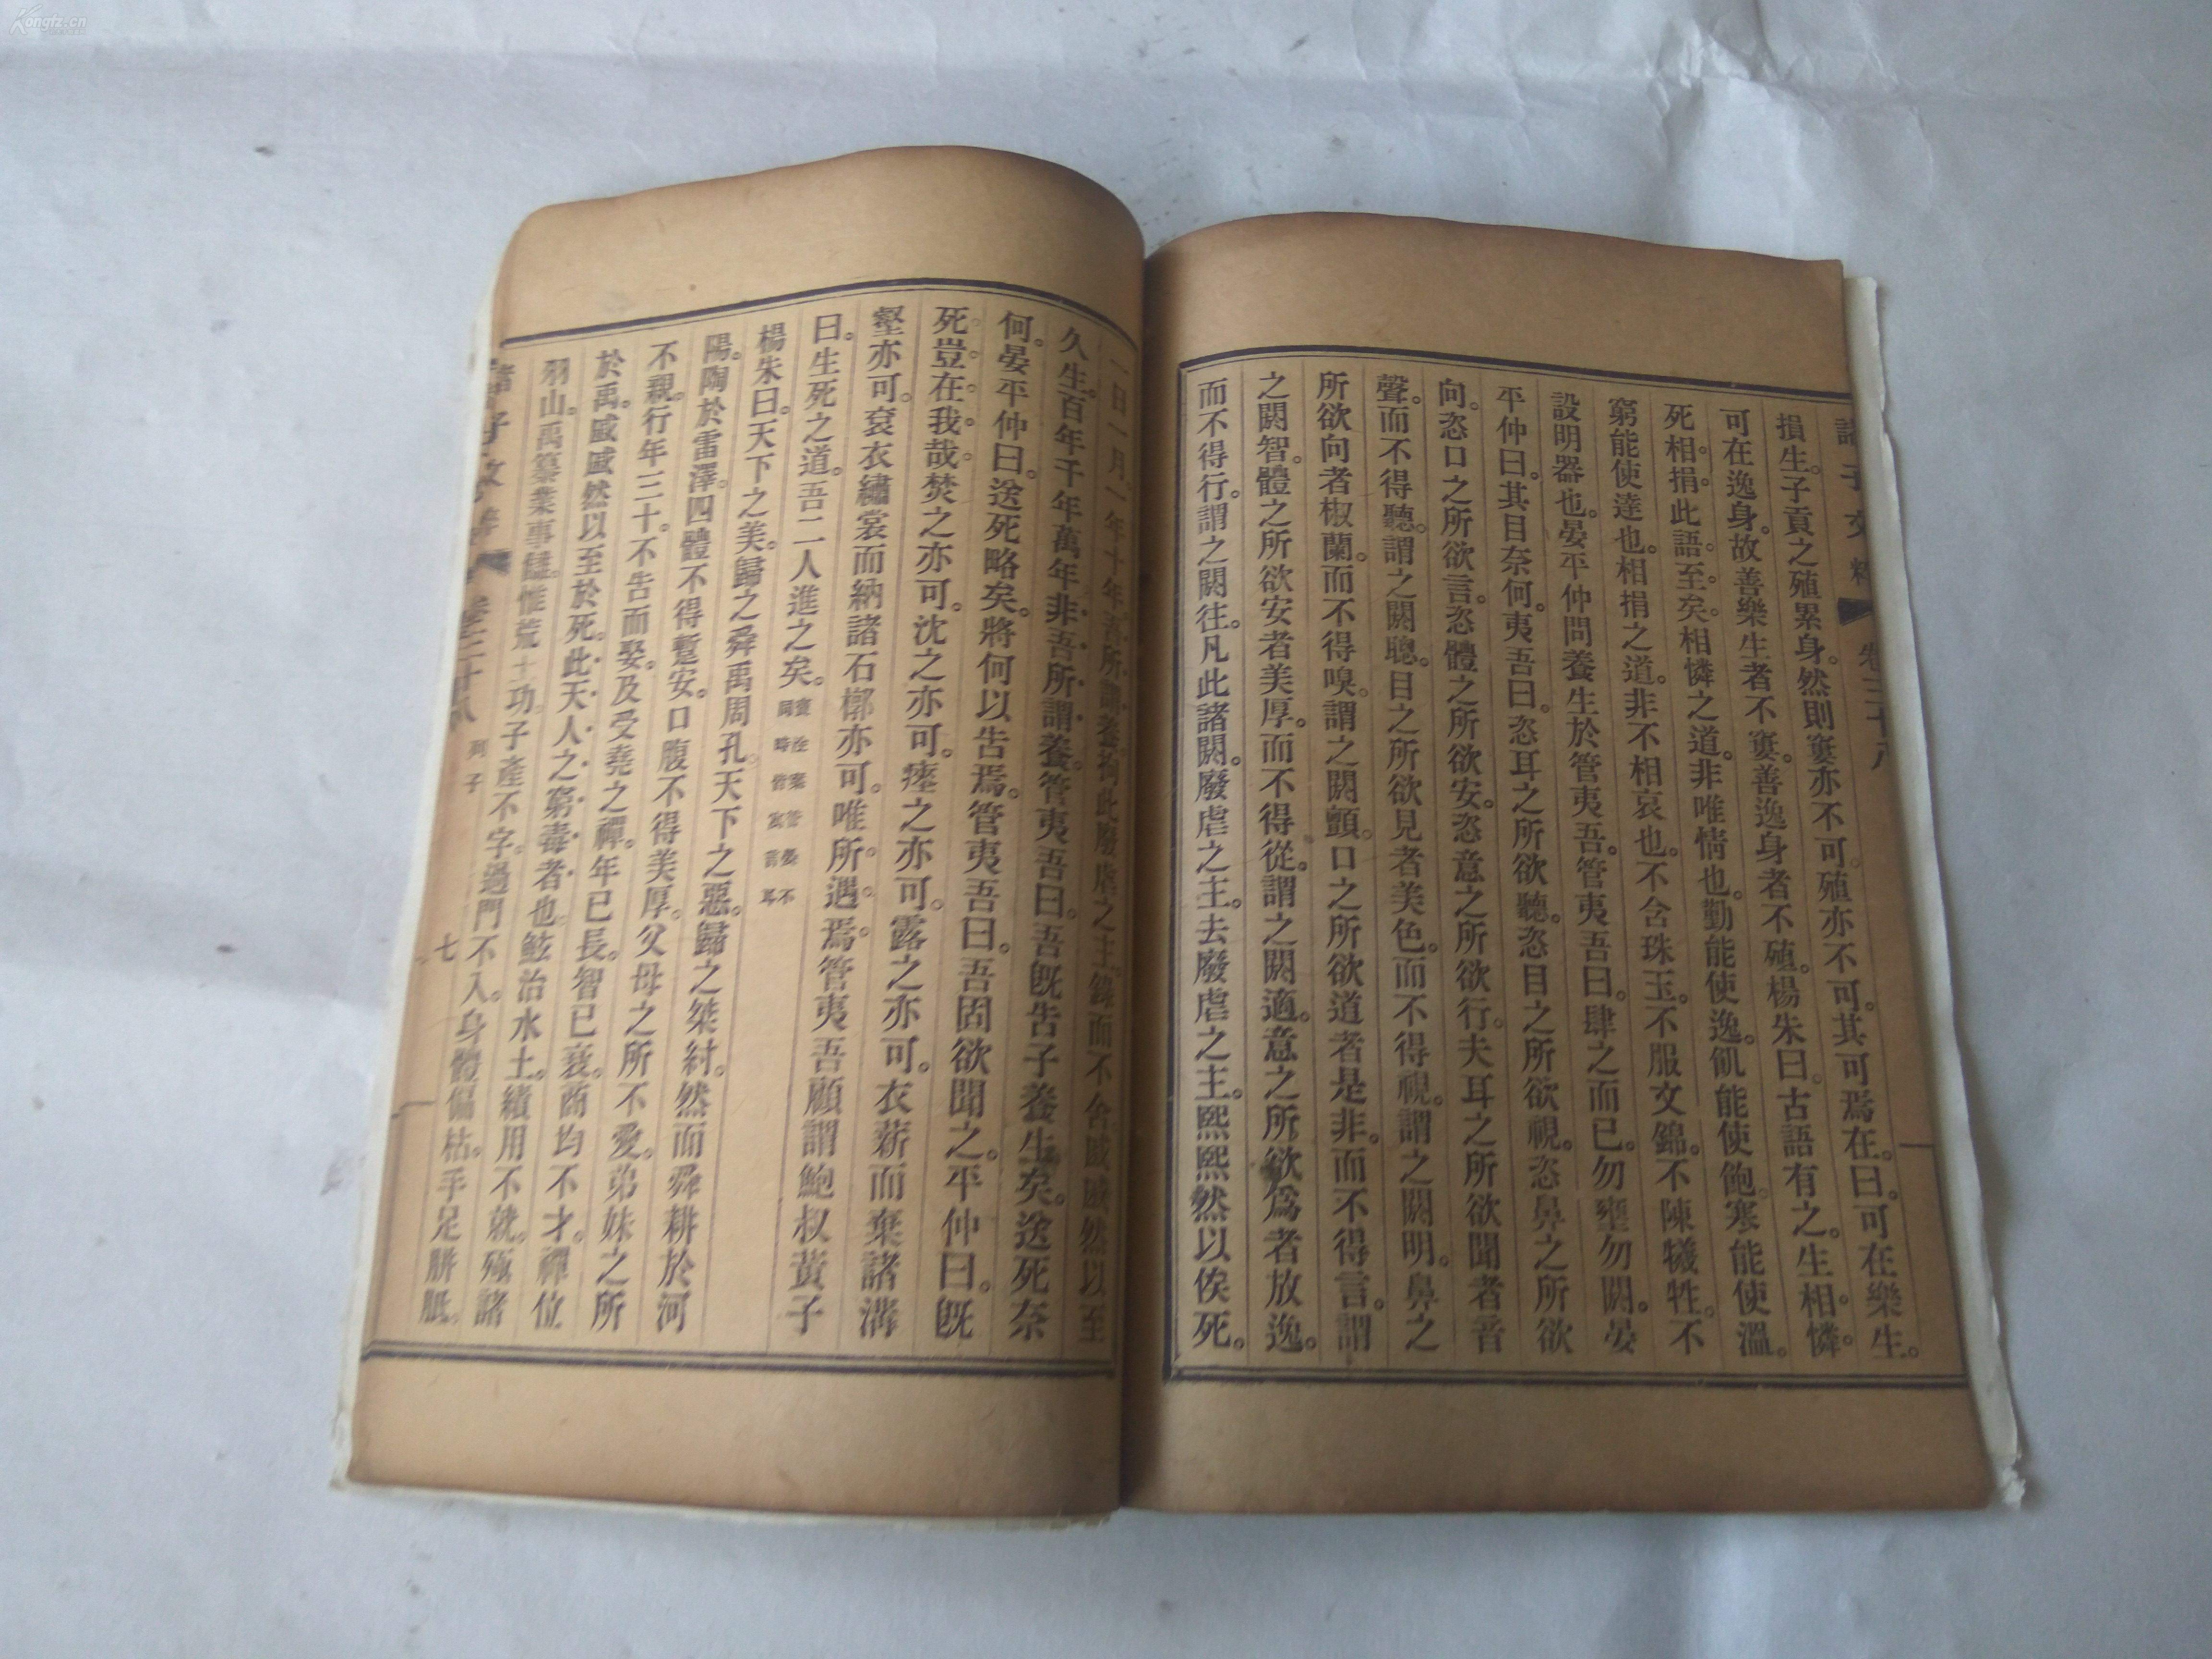 Kongfz.cn
諸子文粹 卷三十八
損生。子貢之殖累身。然則窶亦不可。殖亦不可。其可焉在。曰。可在樂生。
可在逸身。故善樂生者不窶。善逸身者不殖。楊朱曰。古語有之。生相憐。
死相捐。此語至矣。相憐之道。非唯情也。勤能使逸。飢能使飽。寒能使溫。
窮能使達也。相捐之道。非不相哀也。不含珠玉。不服文錦。不陳犧牲。不
設明器也。晏平仲問養生於管夷吾。管夷吾曰。肆之而已。勿壅勿閼。晏
平仲曰。其目奈何。夷吾曰。恣耳之所欲聽。恣目之所欲視。恣鼻之所欲
向。恣口之所欲言。恣體之所欲安。恣意之所欲行。夫耳之所欲聞者音
聲。而不得聽。謂之閼聰。目之所欲見者美色。而不得視。謂之閼明。鼻之
所欲向者椒蘭。而不得嗅。謂之閼顫。口之所欲道者是非。而不得言。謂
之閼智。體之所欲安者美厚。而不得從。謂之閼適。意之所欲爲者放逸。
而不得行。謂之閼往。凡此諸閼。廢虐之主。去廢虐之主。熙熙然以俟死。
一日一月。一年十年。吾所謂養。拘此廢虐之主。錄而不舍。戚戚然以至
久生。百年千年萬年。非吾所謂養。管夷吾曰。吾旣告子養生矣。送死奈
何。晏平仲曰。送死略矣。將何以告焉。管夷吾曰。吾固欲聞之。平仲曰。旣
死。豈在我哉。焚之亦可。沈之亦可。瘞之亦可。露之亦可。衣薪而棄諸溝
壑亦可。袞衣繡裳而納諸石槨亦可。唯所遇焉。管夷吾顧謂鮑叔黃子
曰。生死之道。吾二人進之矣。
楊朱曰。天下之美。歸之舜禹周孔。天下之惡。歸之桀紂。然而舜耕於河
陽。陶於雷澤。四體不得暫安。口腹不得美厚。父母之所不愛。弟妹之所
不親。行年三十。不告而娶。及受堯之禪。年已長。智已衰。商均不才。禪位
於禹。戚戚然以至於死。此天人之窮毒者也。鮌治水土。績用不就。殛諸
羽山。禹纂業事讎。惟荒土功。子產不字。過門不入。身體偏枯。手足胼胝。
諸子文粹 卷三十八 列子 七